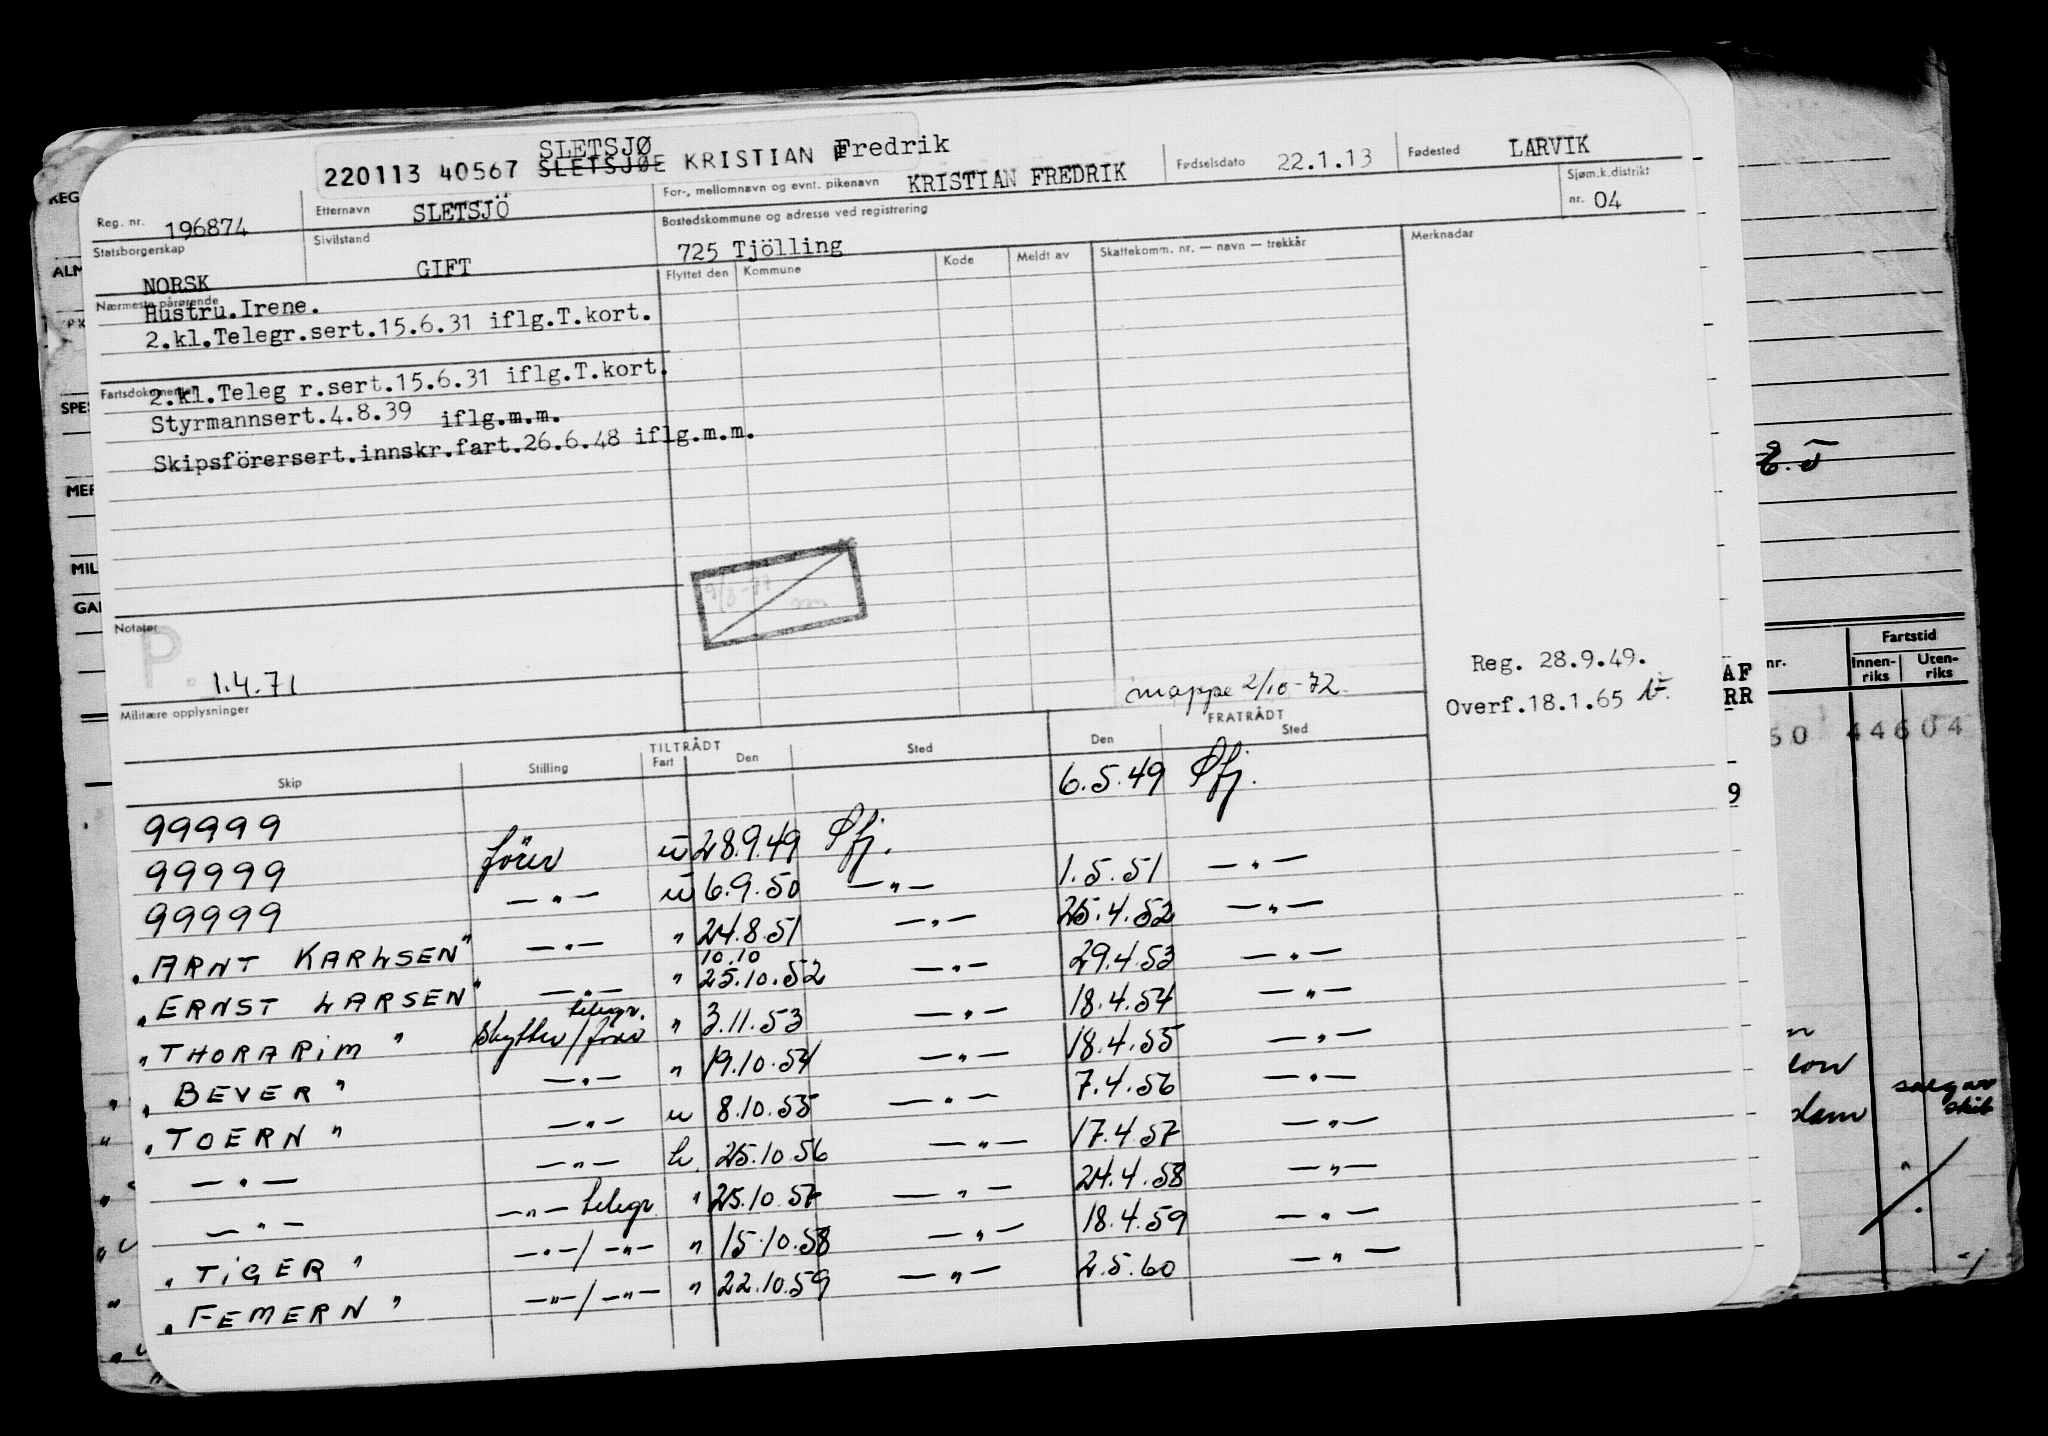 SLETSJØ
220113 40567 SLETSJØE KRISTIAN Fredrik
Reg. nr. 196874
Etternavn SLETSJÖ
For-, mellomnavn og evnt. pikenavn KRISTIAN FREDRIK
Fødselsdato 22.1.13
Fødested LARVIK
Statsborgerskap NORSK
Sivilstand GIFT
Bostedskommune og adresse ved registrering
725 Tjölling
Sjøm.k.distrikt
nr. 04
Nærmeste pårørende
Hustru.Irene.
2.kl.Telegr.sert.15.6.31 iflg.T.kort.
Flyttet den Kommune Kode Meldt av Skattekomm. nr. — navn — trekkår Merknadar
Fartsdokumenter
2.kl.Teleg r.sert.15.6.31 iflg.T.kort.
Styrmannsert.4.8.39 iflg.m.m.
Skipsförersert.innskr.fart.26.6.48 iflg.m.m.
Notater
P.
1.4.71
mappe 2/10-72
Reg. 28.9.49.
Overf.18.1.65
Militære opplysninger
TILTRÅDT FRATRÅDT
Skip Stilling Fart Den Sted Den Sted
99999 6.5.49 Sfj.
99999 förer u 28.9.49 Sfj.
99999 —"— u 6.9.50 —"— 1.5.51 —"—
"ARNT KARLSEN" —"— " 24.8.51 —"— 25.4.52 —"—
10.10
"ERNST LARSEN" —"— " 25.10.52 —"— 29.4.53 —"—
telegr.
"THORARIM" Skytter/fører " 3.11.53 —"— 18.4.54 —"—
"BEVER" —"— " 19.10.54 —"— 18.4.55 —"—
"TOERN" —"— u 8.10.55 —"— 7.4.56 —"—
—"— —"— h 25.10.56 —"— 17.4.57 —"—
—"— —"— telegr. " 25.10.57 —"— 24.4.58 —"—
"TIGER" —"—/—"— " 15.10.58 —"— 18.4.59 —"—
"FEMERN" —"—/—"— " 22.10.59 —"— 2.5.60 —"—
REG
ALM
SPES
MER
MIL
GAF
nr.
Fartstid
Innen-
riks
Uten-
riks
AF
RR
50 44604
9
salg av
skib